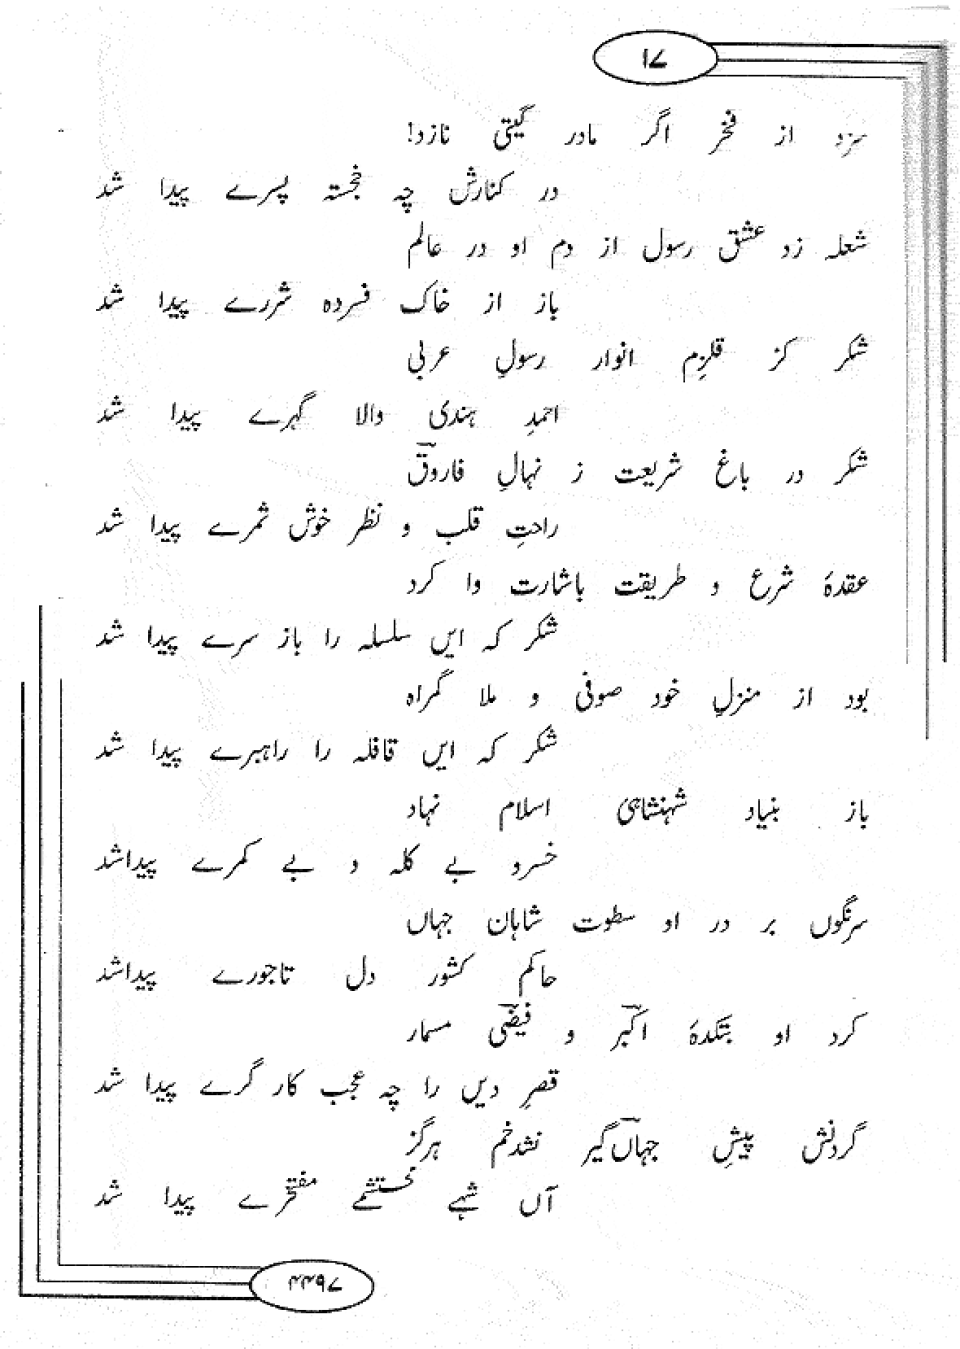 ۱۷
سزد از فخر اگر مادر گیتی نازد!
در کنارش چہ خجستہ پسرے پیدا شد
شعلہ زد عشق رسول از دم او در عالم
باز از خاک فسردہ شررے پیدا شد
شکر کز قلزمِ انوار رسولِ عربی
احمدِ ہندی والا گہرے پیدا شد
شکر در باغ شریعت ز نہالِ فاروقؓ
راحتِ قلب و نظر خوش ثمرے پیدا شد
عقدۂ شرع و طریقت باشارت وا کرد
شکر کہ ایں سلسلہ را باز سرے پیدا شد
بود از منزلِ خود صوفی و ملا گمراہ
شکر کہ ایں قافلہ را راہبرے پیدا شد
باز بنیاد شہنشاہیٔ اسلام نہاد
خسرو بے کلہ و بے کمرے پیداشد
سرنگوں بر در او سطوت شاہان جہاں
حاکم کشور دل تاجورے پیداشد
کرد او بتکدۂ اکبر و فیضی مسمار
قصرِ دیں را چہ عجب کار گرے پیدا شد
گردنش پیشِ جہاں گیر نشدخم ہرگز
آں شہے مفتخرے پیدا شد